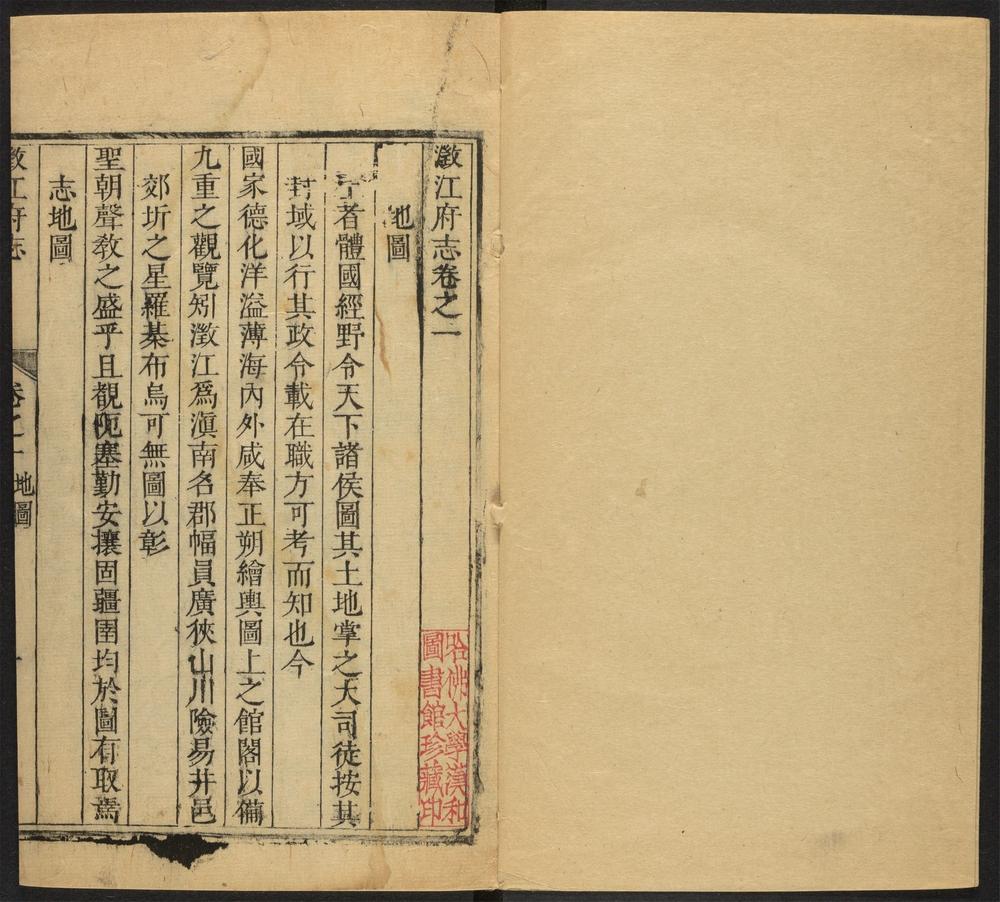 澂江府志卷之一
地圖
王者體國經野令天下諸侯圖其土地掌之大司徒按其
封域以行其政令載在職方可考而知也今
國家德化洋溢薄海內外咸奉正朔繪輿圖上之館閣以備
九重之觀覽矧澂江爲滇南名郡幅員廣狹山川險易井邑
郊圻之星羅棊布烏可無圖以彰
聖朝聲敎之盛乎且覩阨塞勤安攘固疆圉均於圖有取焉
志地圖
澂江府志
卷之一
地圖
哈佛大學漢和
圖書館珍藏印